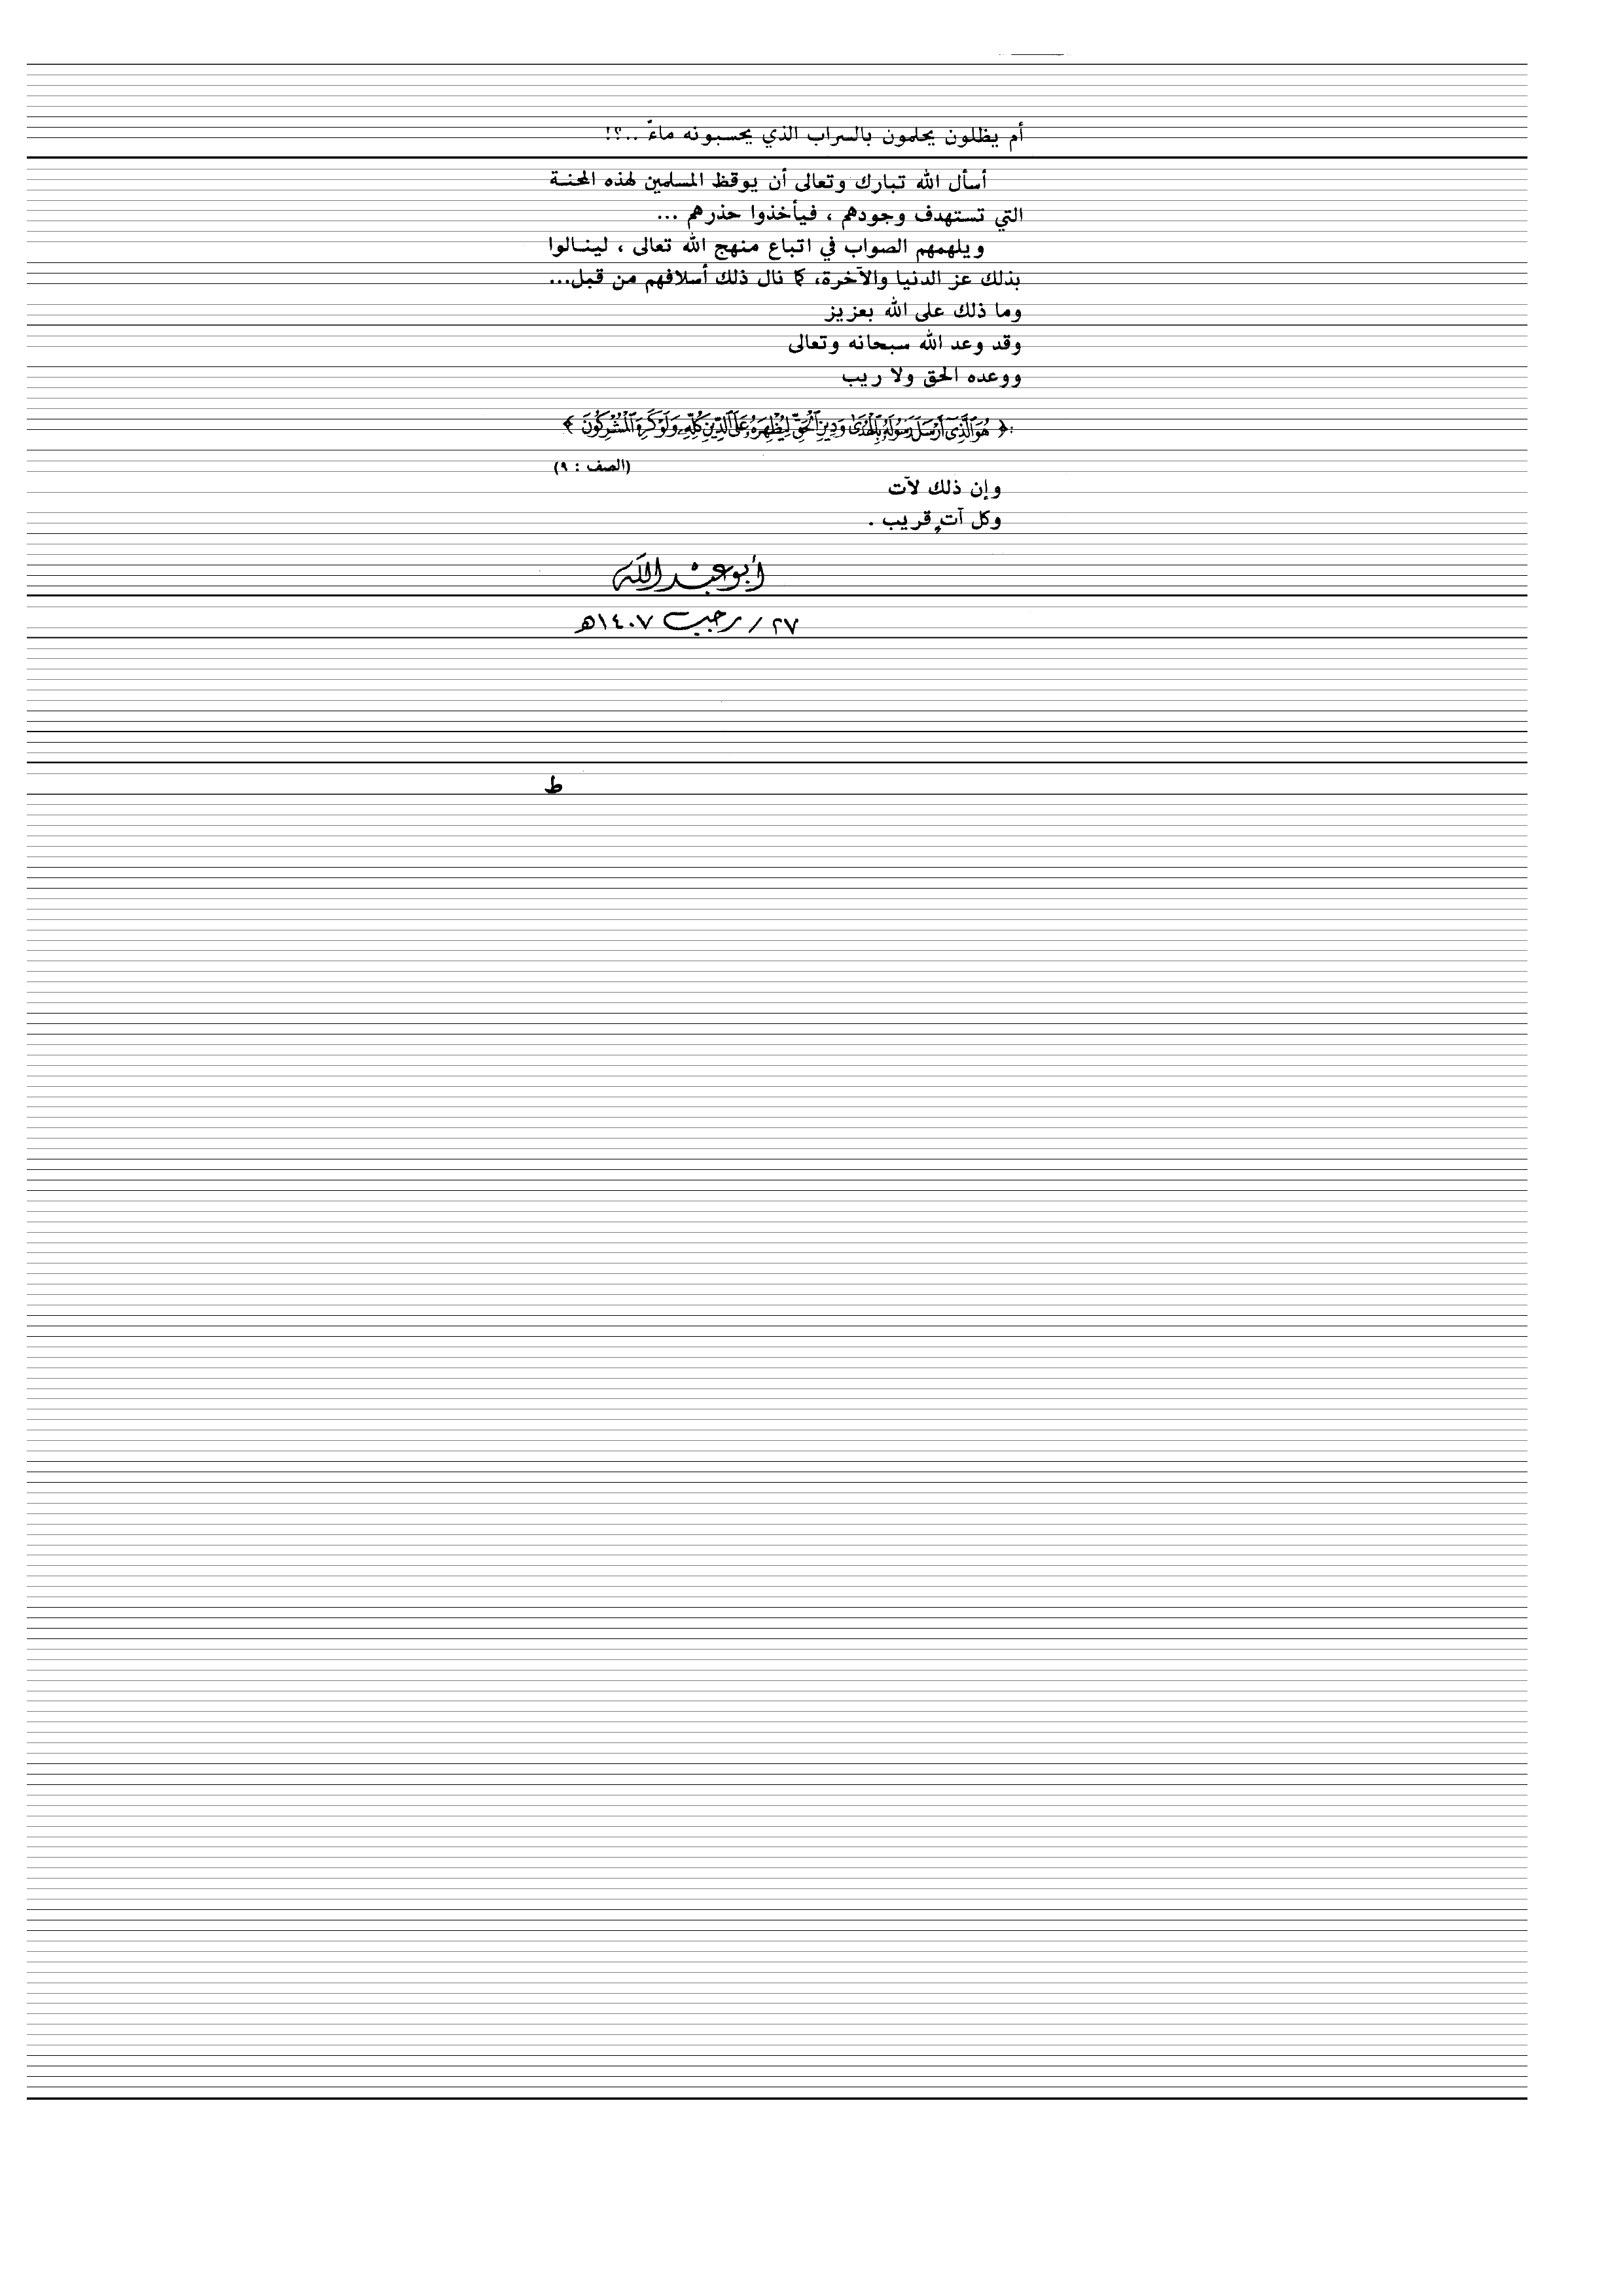 أم يظلون يحلمون بالسراب الذي يحسبونه ماءً ..؟!
أسأل الله تبارك وتعالى أن يوقظ المسلمين لهذه المحنة
التي تستهدف وجودهم ، فيأخذوا حذرهم ...
ويلهمهم الصواب في اتباع منهج الله تعالى ، لينالوا
بذلك عز الدنيا والآخرة، كما نال ذلك أسلافهم من قبل...
وما ذلك على الله بعزيز
وقد وعد الله سبحانه وتعالى
ووعده الحق ولا ريب
:﴿ هُوَ ٱلَّذِىٓ أَرْسَلَ رَسُولَهُۥ بِٱلْهُدَىٰ وَدِينِ ٱلْحَقِّ لِيُظْهِرَهُۥ عَلَى ٱلدِّينِ كُلِّهِۦ وَلَوْ كَرِهَ ٱلْمُشْرِكُونَ ﴾
(الصف : ٩)
وإن ذلك لآت
وكل آتٍ قريب .
أبو عبد الله
٢٧ / رجب ١٤٠٧هـ
ط